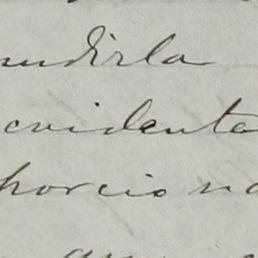 undirla
evidenta
porciona